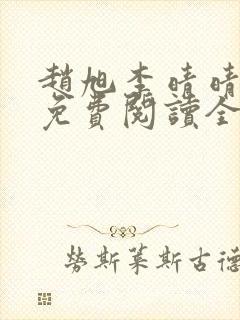 趙旭李晴晴
免費閱讀全
勞斯萊斯古德